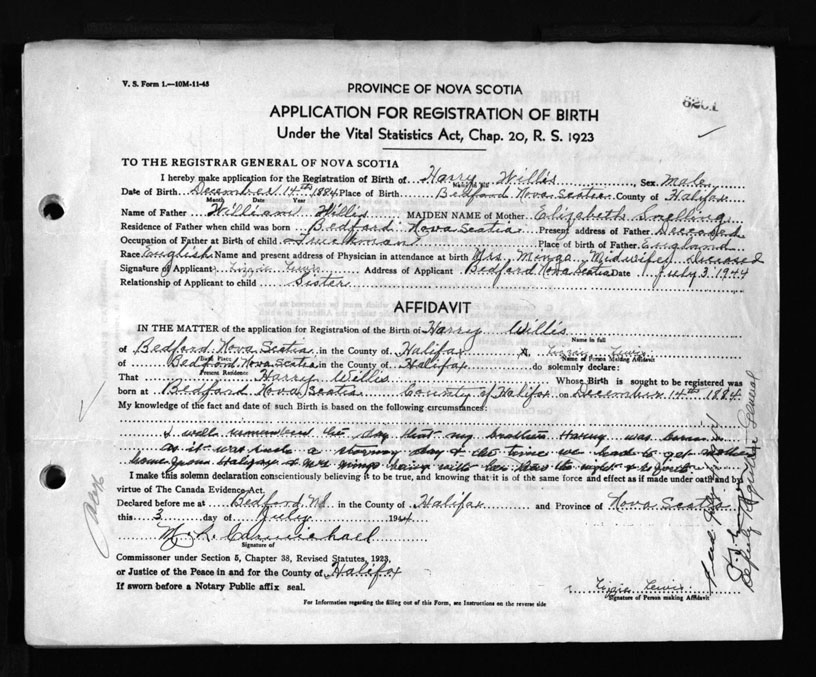 V. S. Form 1.—10M-11-43
PROVINCE OF NOVA SCOTIA
6201
APPLICATION FOR REGISTRATION OF BIRTH
Under the Vital Statistics Act, Chap. 20, R. S. 1923
TO THE REGISTRAR GENERAL OF NOVA SCOTIA
I hereby make application for the Registration of Birth of Harry Willis Sex Male
Date of Birth December 14th 1884 Place of Birth Bedford Nova Scotia County of Halifax
Month Date Year
Name of Father William Willis MAIDEN NAME of Mother Elizabeth Snelling
Residence of Father when child was born Bedford Nova Scotia Present address of Father Deceased
Occupation of Father at Birth of child Place of Birth of Father England
Race English Name and present address of Physician in attendance at birth Mrs. Minga Midwife deceased
Signature of Applicant Lizzie Lewis Address of Applicant Bedford Nova Scotia Date July 3 1944
Relationship of Applicant to child Sister
AFFIDAVIT
IN THE MATTER of the application for Registration of the Birth of Harry Willis
Name in full
of Bedford Nova Scotia in the County of Halifax Lizzie Lewis
Birth Place Name of Person making Affidavit
of Bedford Nova Scotia in the County of Halifax do solemnly declare:
Present Residence
That Harry Willis Whose Birth is sought to be registered was
born at Bedford Nova Scotia County of Halifax on December 14th 1884
My knowledge of the fact and date of such Birth is based on the following circumstances:
I well remember the day that my brother Harry was born
as it was quite a stormy day & the time we had to get mother
home from Halifax & Mrs
I make this solemn declaration conscientiously believing it to be true, and knowing that it is of the same force and effect as if made under oath and by
virtue of The Canada Evidence Act.
Declared before me at Bedford NS in the County of Halifax and Province of Nova Scotia
this 3 day of July 1944
Carmichael
Signature of
Commissioner under Section 5, Chapter 38, Revised Statutes, 1923,
or Justice of the Peace in and for the County of Halifax
If sworn before a Notary Public affix seal.
Lizzie Lewis
Signature of Person making Affidavit
For Information regarding the filling out of this Form, see Instructions on the reverse side
Deputy Registrar General